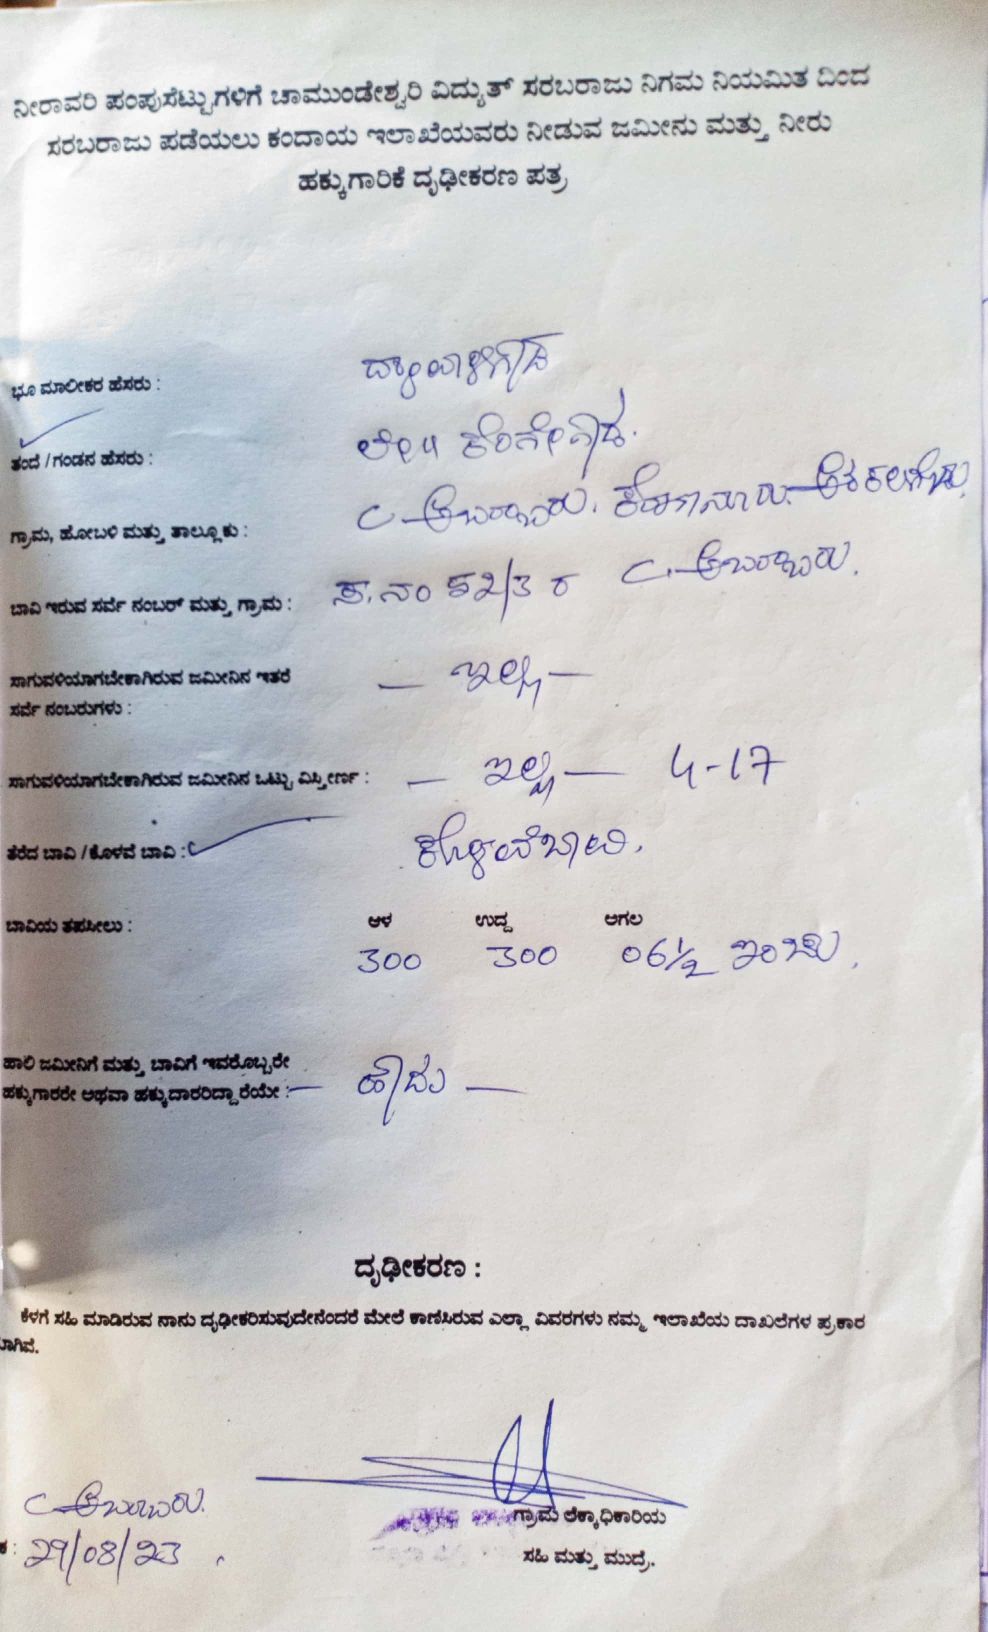 ನೀರಾವರಿ ಪಂಪುಸೆಟ್ಟುಗಳಿಗೆ ಚಾಮುಂಡೇಶ್ವರಿ ವಿದ್ಯುತ್ ಸರಬರಾಜು ನಿಗಮ ನಿಯಮಿತ ದಿಂದ
ಸರಬರಾಜು ಪಡೆಯಲು ಕಂದಾಯ ಇಲಾಖೆಯವರು ನೀಡುವ ಜಮೀನು ಮತ್ತು ನೀರು
ಹಕ್ಕುಗಾರಿಕೆ ದೃಢೀಕರಣ ಪತ್ರ
ಭೂ ಮಾಲೀಕರ ಹೆಸರು :
ತಂದೆ / ಗಂಡನ ಹೆಸರು : ಲೇ॥
ಗ್ರಾಮ, ಹೋಬಳಿ ಮತ್ತು ತಾಲ್ಲೂಕು :
ಬಾವಿ ಇರುವ ಸರ್ವೆ ನಂಬರ್ ಮತ್ತು ಗ್ರಾಮ : ಸ.ನಂ
ಸಾಗುವಳಿಯಾಗಬೇಕಾಗಿರುವ ಜಮೀನಿನ ಇತರೆ — ಇಲ್ಲ —
ಸರ್ವೆ ನಂಬರುಗಳು :
ಸಾಗುವಳಿಯಾಗಬೇಕಾಗಿರುವ ಜಮೀನಿನ ಒಟ್ಟು ವಿಸ್ತೀರ್ಣ : — ಇಲ್ಲ — 4-17
ತೆರೆದ ಬಾವಿ / ಕೊಳವೆ ಬಾವಿ : ಕೊಳವೆಬಾವಿ.
ಬಾವಿಯ ತಪಸೀಲು : ಆಳ ಉದ್ದ ಅಗಲ
300 300 06½ ಇಂಚು.
ಹಾಲಿ ಜಮೀನಿಗೆ ಮತ್ತು ಬಾವಿಗೆ ಇವರೊಬ್ಬರೇ
ಹಕ್ಕುಗಾರರೇ ಅಥವಾ ಹಕ್ಕುದಾರರಿದ್ದಾರೆಯೇ : — ಹೌದು —
ದೃಢೀಕರಣ :
ಕೆಳಗೆ ಸಹಿ ಮಾಡಿರುವ ನಾನು ದೃಢೀಕರಿಸುವುದೇನೆಂದರೆ ಮೇಲೆ ಕಾಣಿಸಿರುವ ಎಲ್ಲಾ ವಿವರಗಳು ನಮ್ಮ ಇಲಾಖೆಯ ದಾಖಲೆಗಳ ಪ್ರಕಾರ
ಗ್ರಾಮ ಲೆಕ್ಕಾಧಿಕಾರಿಯ
29/08/23
ಸಹಿ ಮತ್ತು ಮುದ್ರೆ.